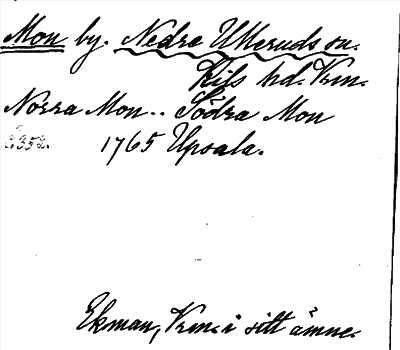 Mon by. Nedre Ulleruds sn.
Kils hd. Vrm.
Norra Mon.. Södra Mon
1765 Upsala.
Ekman, Vrm. i sitt ämne.